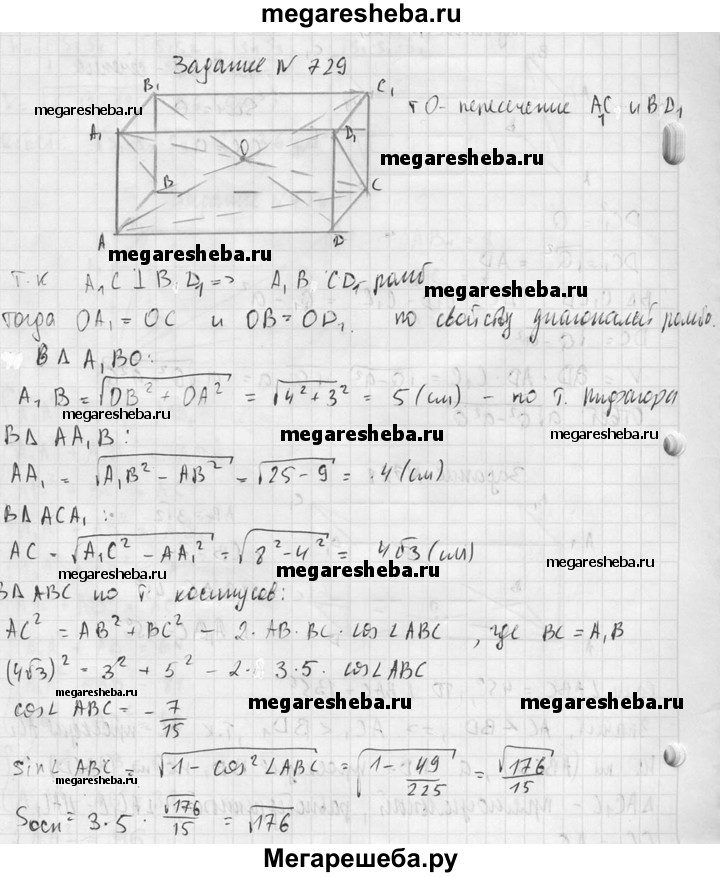 megaresheba.ru
Задание N 729
B₁ C₁
megaresheba.ru
т О- пересечение A₁C и BD₁
A₁ O D₁
megaresheba.ru
B C
A D
megaresheba.ru
т.к A₁C ⊥ B D₁ => A₁ B CD₁ ромб
megaresheba.ru
тогда OA₁ = OC и OB = OD₁ по свойству диагоналей ромба.
В Δ A₁BO:
A₁ B = √(OB² + OA²) = √(4² + 3²) = 5 (см) - по т. Пифагора
megaresheba.ru
megaresheba.ru
В Δ AA₁B:
megaresheba.ru
AA₁ = √(A₁B² - AB²) = √(25 - 9) = 4 (см)
megaresheba.ru
В Δ ACA₁:
AC = √(A₁C² - AA₁²) = √(8² - 4²) = 4√3 (см)
megaresheba.ru
megaresheba.ru
megaresheba.ru
В Δ ABC по т косинусов:
AC² = AB² + BC² - 2· AB· BC· cos∠ABC , где BC = A₁B
(4√3)² = 3² + 5² - 2· 3·5· cos∠ABC
megaresheba.ru
cos∠ ABC = - 7/15
megaresheba.ru
megaresheba.ru
sin∠ ABC = √(1 - cos²∠ABC) = √(1 - 49/225) = √176/15
megaresheba.ru
Sосн = 3·5· √176/15 = √176
Мегарешеба.ру